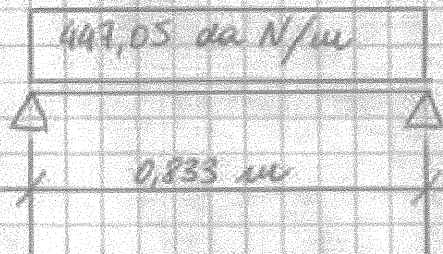 449,05 da N/m
0,833 m